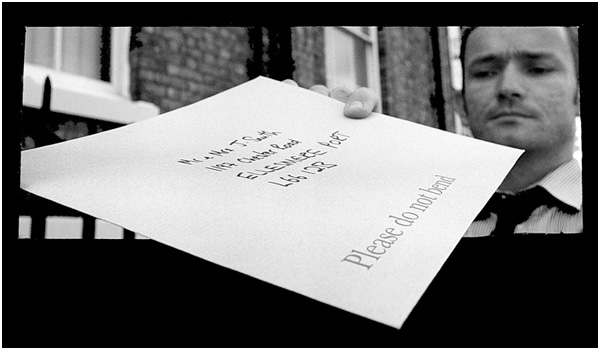 Mr & Mrs J Smith
1197 Chester Road
ELLESMERE PORT
L66 1QB
Please do not bend